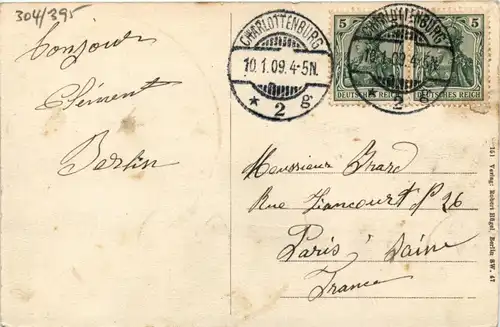 304/395
Bonjour
Clément
Berlin
CHARLOTTENBURG
10.1.09.4-5N.
* 2 g
CHARLOTTENBURG
10.1.09.4-5N.
* 2 g
5 5
DEUTSCHES REICH
5 5
DEUTSCHES REICH
Monsieur
Rue Liancourt № 26
Paris Seine
France
151 Verlag Robert Hügel, Berlin SW. 47